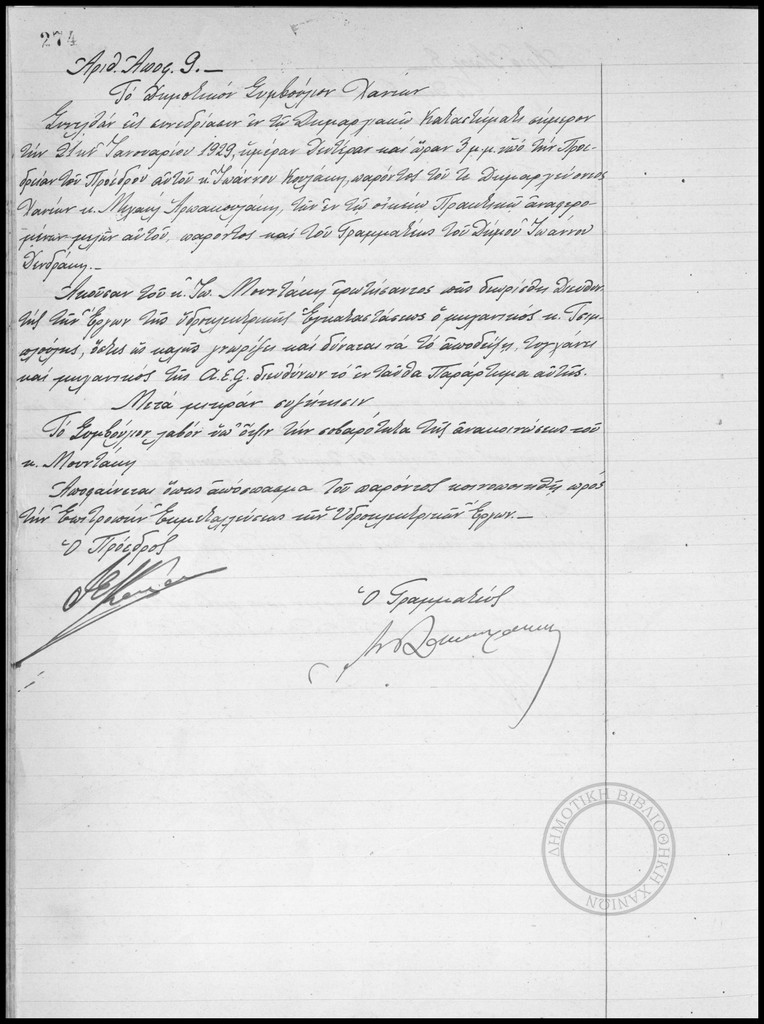 274
Ἀριθ. Ἀποφ. 9.—
Τὸ Δημοτικὸν Συμβούλιον Χανίων
Συνελθὸν εἰς συνεδρίασιν ἐν τῷ Δημαρχιακῷ Καταστήματι σήμερον
τὴν 21ην Ἰανουαρίου 1929, ἡμέραν Δευτέραν καὶ ὥραν 3 μ.μ. ὑπὸ τὴν Προ-
εδρείαν τοῦ Προέδρου αὐτοῦ κ. Ἰωάννου, παρόντος τοῦ κ. Δημαρχεύοντος
Χανίων κ., τῶν ἐν τῷ οἰκείῳ Πρακτικῷ ἀναφερο-
μένων μελῶν αὐτοῦ, παρόντος καὶ τοῦ Γραμματέως τοῦ Δήμου Ἰωάννου
Δενδράκη.—
Ἀκοῦσαν τοῦ κ. Ἰω. Μουντάκη ἐρωτήσαντος πῶς διωρίσθη Διευθυν-
τὴς τῶν Ἔργων τῆς ὑδροηλεκτρικῆς Ἐγκαταστάσεως ὁ μηχανικὸς κ.
ὅστις ὡς καλῶς γνωρίζει καὶ δύναται νὰ τὸ ἀποδείξῃ, τυγχάνει
καὶ μηχανικὸς τῆς A.E.G. διευθύνων τὸ ἐνταῦθα Παράρτημα αὐτῆς.
Μετὰ μικρὰν συζήτησιν
Τὸ Συμβούλιον λαβὸν ὑπ' ὄψιν τὴν σοβαρότητα τῆς ἀνακοινώσεως τοῦ
κ. Μουντάκη
Ἀποφαίνεται ὅπως ἀπόσπασμα τοῦ παρόντος κοινοποιηθῇ πρὸς
τὴν Ἐπιτροπὴν Ἐκμεταλλεύσεως τῶν Ὑδροηλεκτρικῶν Ἔργων.—
Ὁ Πρόεδρος
Ὁ Γραμματεὺς
ΔΗΜΟΤΙΚΗ ΒΙΒΛΙΟΘΗΚΗ ΧΑΝΙΩΝ